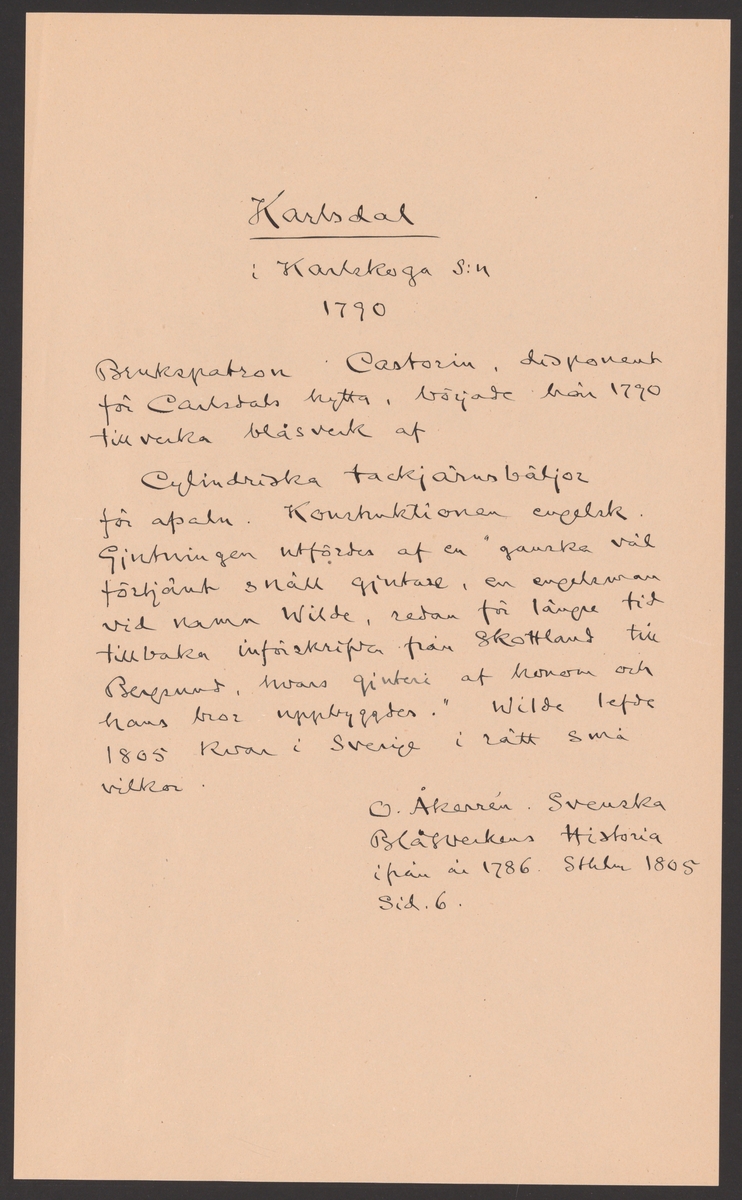 Karlsdal
i Karlskoga S:n
1790
Brukspatron Castorin, disponent
för Carlsdals hytta, började från 1790
tillverka blåsverk af
Cylindriska tackjärnsbäljor
för afsalu. Konstruktionen engelsk.
Gjutningen utfördes af en "ganska väl
förtjänt snäll gjutare, en engelsman
vid namn Wilde, redan för längre tid
tillbaka införskrifven från Skottland till
Bergsund, hvars gjuteri af honom och
hans bror uppbyggdes." Wilde lefde
1805 kvar i Sverige i rätt små
vilkor.
O. Åkerrén. Svenska
Blåsverkens Historia
ifrån år 1786. Sthlm 1805
Sid. 6.